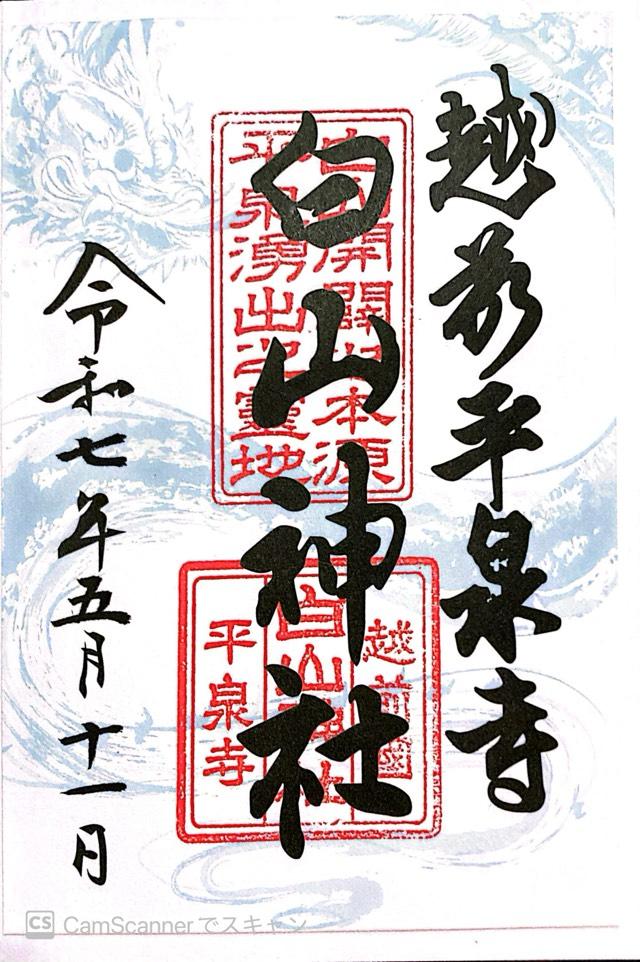 越前平泉寺
白山神社
白山開闢之本源
平泉湧出之靈地
越前國
白山神社
平泉寺
令和七年五月十一日
CS CamScannerでスキャン